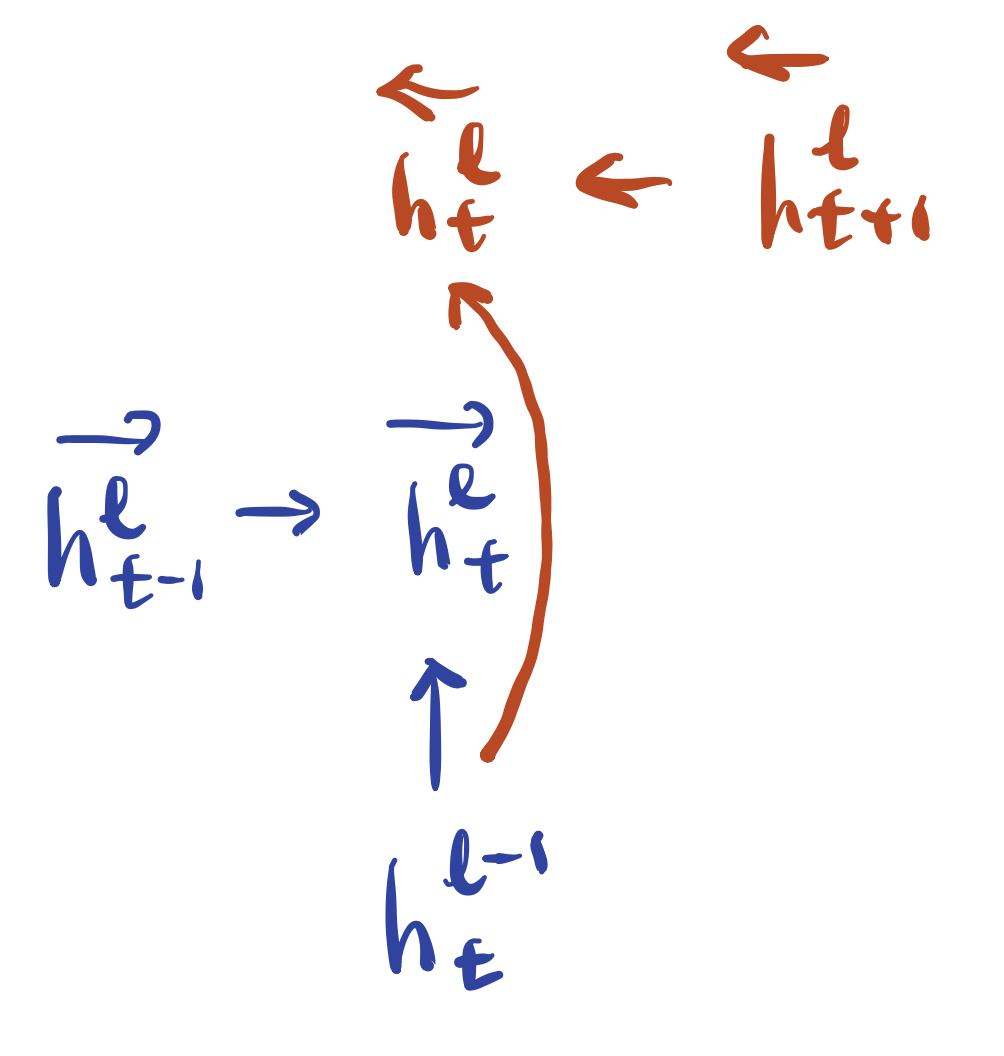 ←h_t^ℓ ← ←h_{t+1}^ℓ
→h_{t-1}^ℓ → →h_t^ℓ
h_t^{ℓ-1}